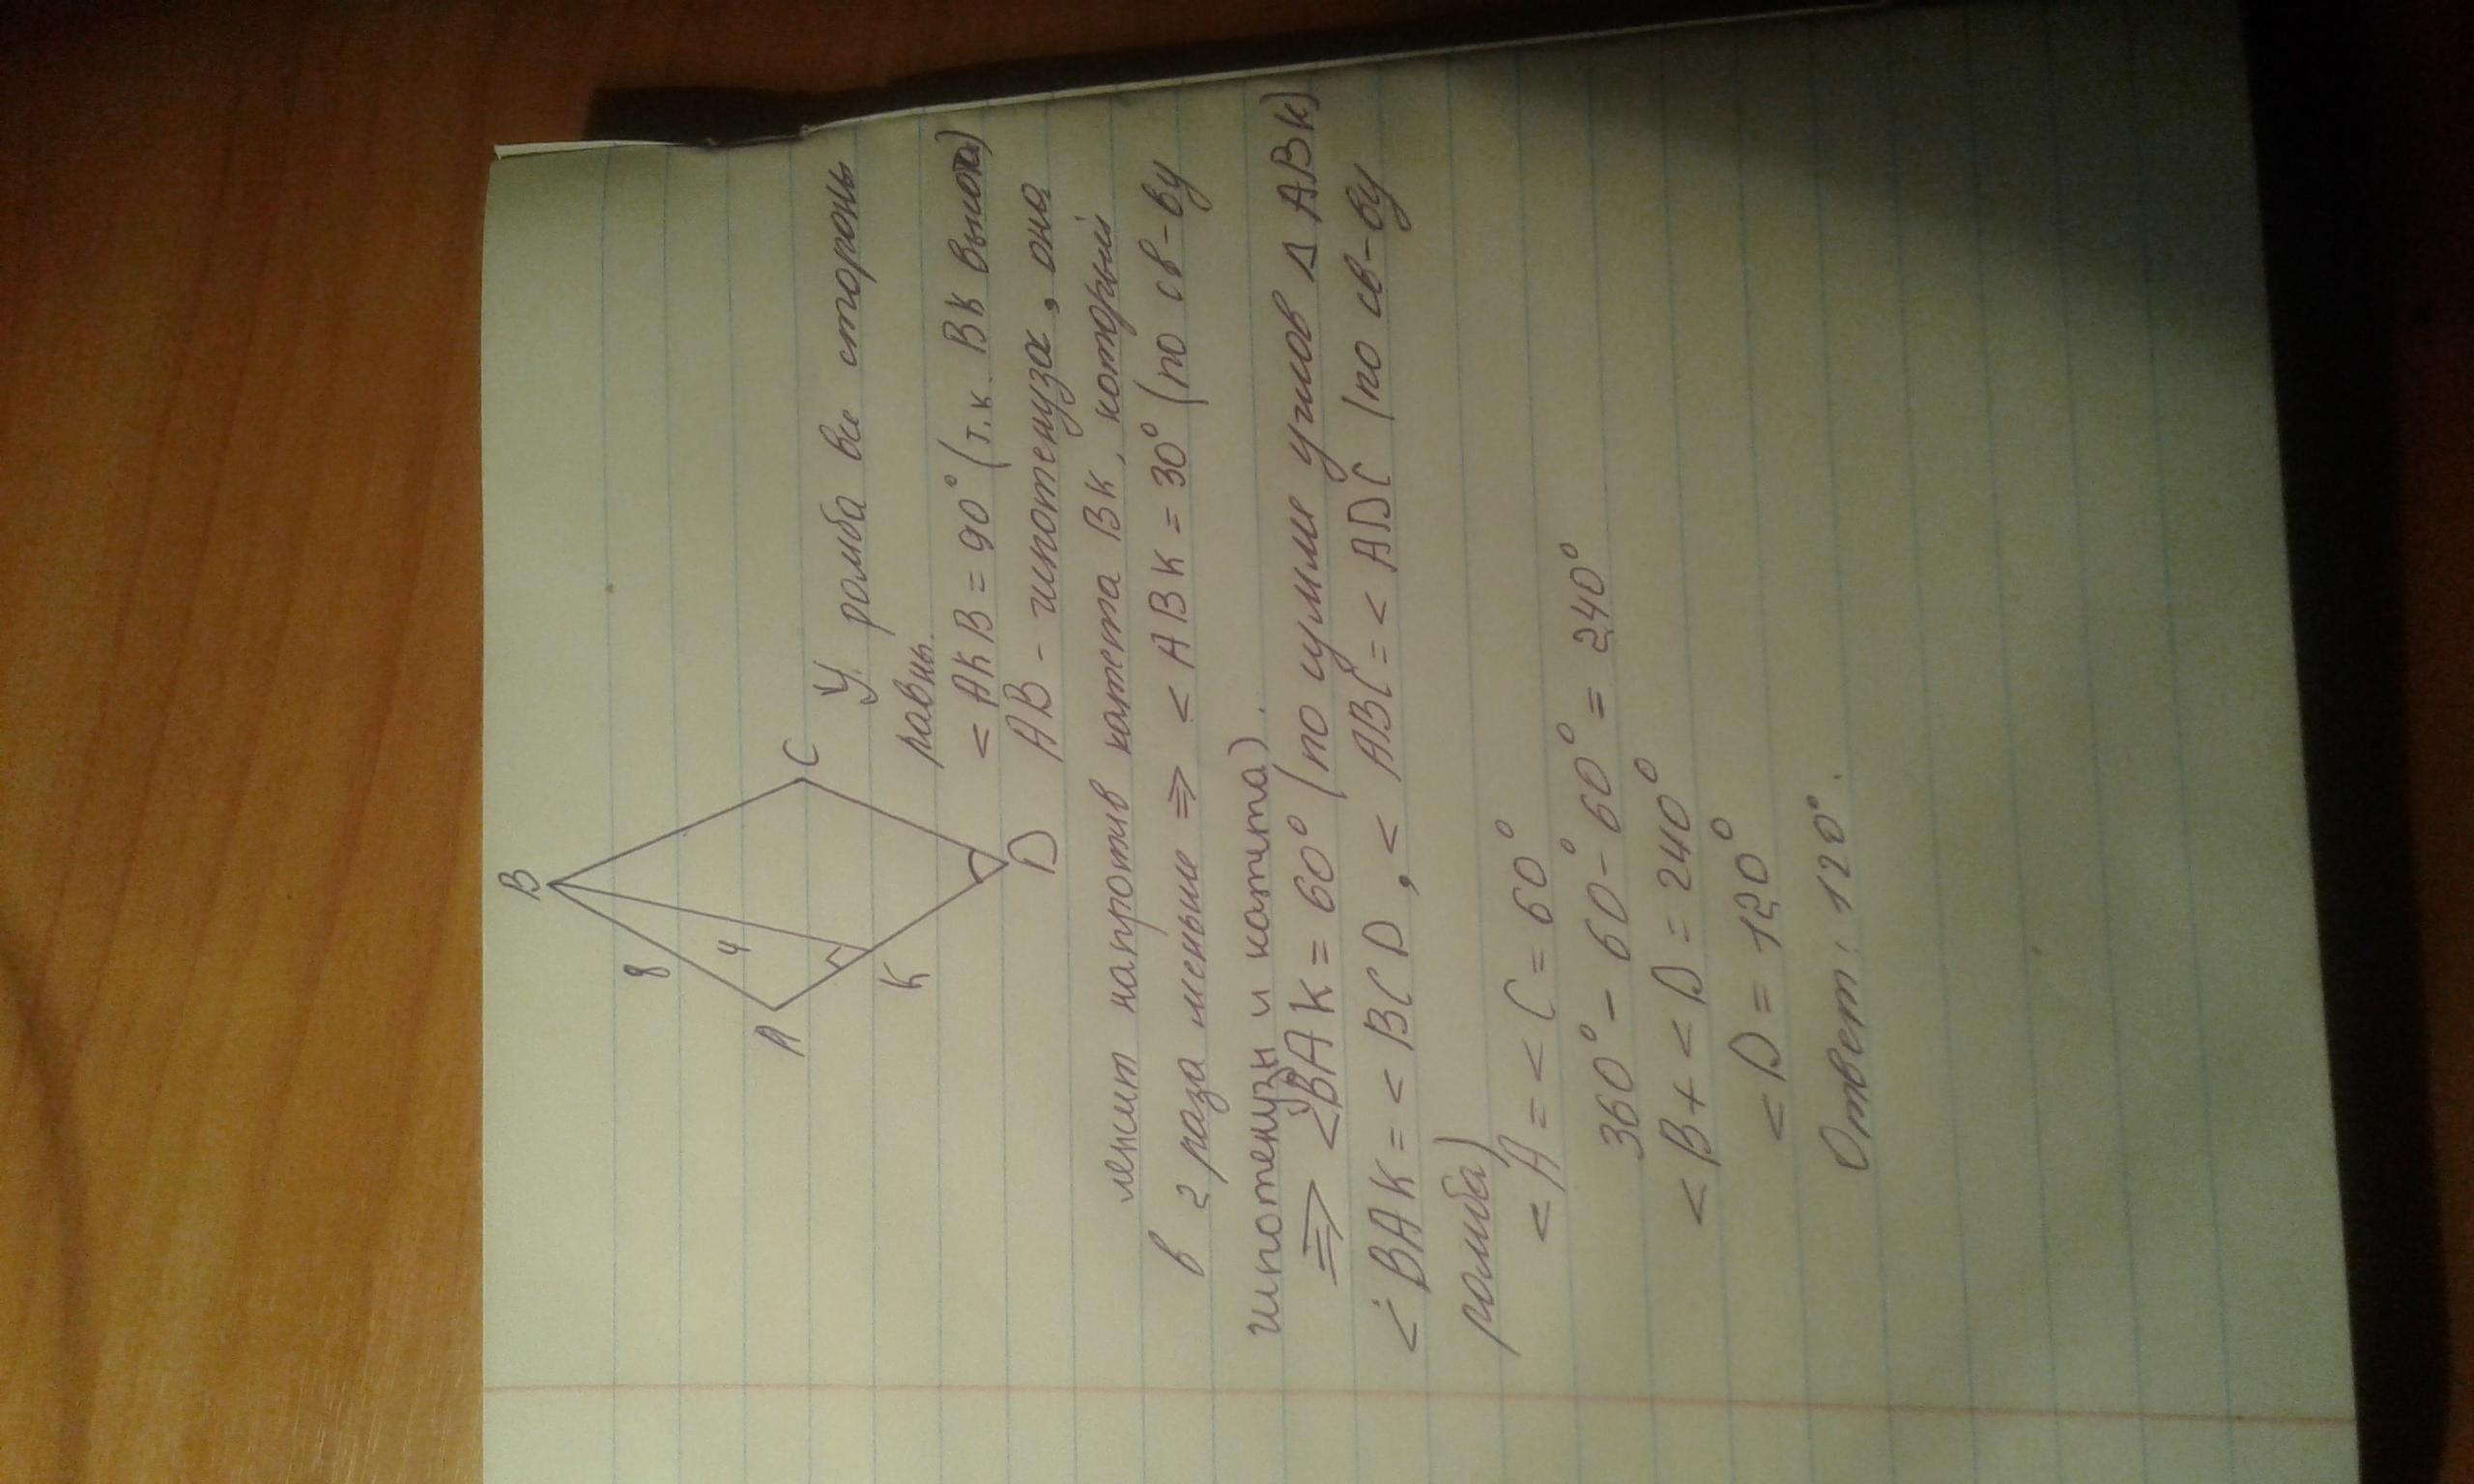 B
8
4
A
K
C
D
У ромба все стороны
равны.
< AKB = 90° (т.к. BK высота)
AB - гипотенуза, она
лежит напротив катета BK, который
в 2 раза меньше => < ABK = 30° (по св-ву
гипотенузы и катета).
=> <BAK = 60° (по сумме углов Δ ABK)
< BAK = < BCD, < ABC = < ADC (по св-ву
ромба)
< A = < C = 60°
360° - 60 - 60° - 60° = 240°
< B + < D = 240°
< D = 120°
Ответ: 120°.